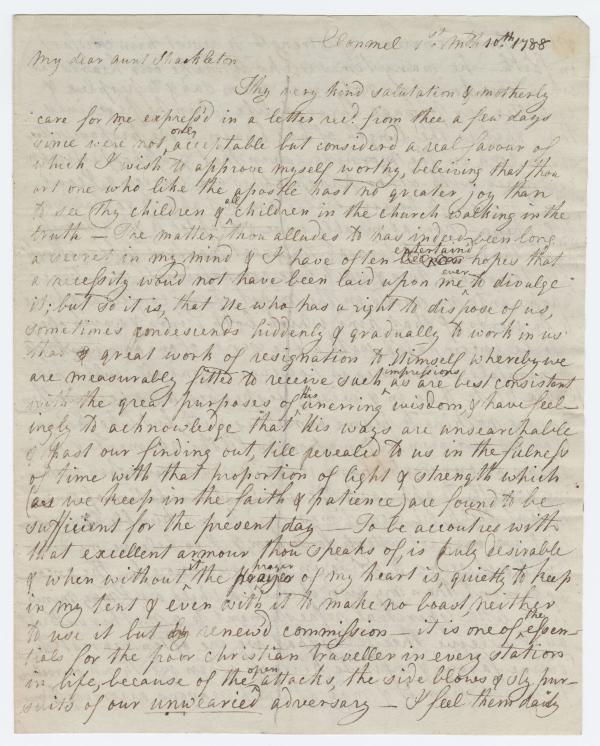 Clonmel 1st. Mth 10th. 1788
My dear aunt Shackleton
Thy very kind salutation & motherly
care for me express'd in a letter recd. from thee a few days
since were not only acceptable but considerd a real favour of
which I wish to approve myself worthy, beleiving that thou
art one who like the apostle hast no greater joy than
to see thy children & all children in the church walking in the
truth — The matter thou alludes to has indeed been long
a secret in my mind & I have often entertain'd hopes that
a necessity wou'd not have been laid upon me ever to divulge
it; but so it is, that He who has a right to dispose of us,
sometimes condescends hiddenly & gradually to work in us
that & great work of resignation to Himself whereby we
are measurably fitted to receive such impressions as are best consistent
with the great purposes of his unerring wisdom, & have feel-
ingly to acknowledge that His ways are unsearchable
& past our finding out, till revealed to us in the fulness
of time with that proportion of light & strength which
(as we keep in the faith & patience) are found to be
sufficient for the present day — To be accoutred with
that excellent armour thou speaks of, is truly desirable
& when without it the prayer of my heart is, quietly to keep
in my tent & even with it to make no boast, neither
to use it but by renew'd commission — it is one of the essen-
tials for the poor christian traveller in every station
in life, because of the open attacks, the side blows & sly pur-
suits of our unwearied adversary — I feel them daily